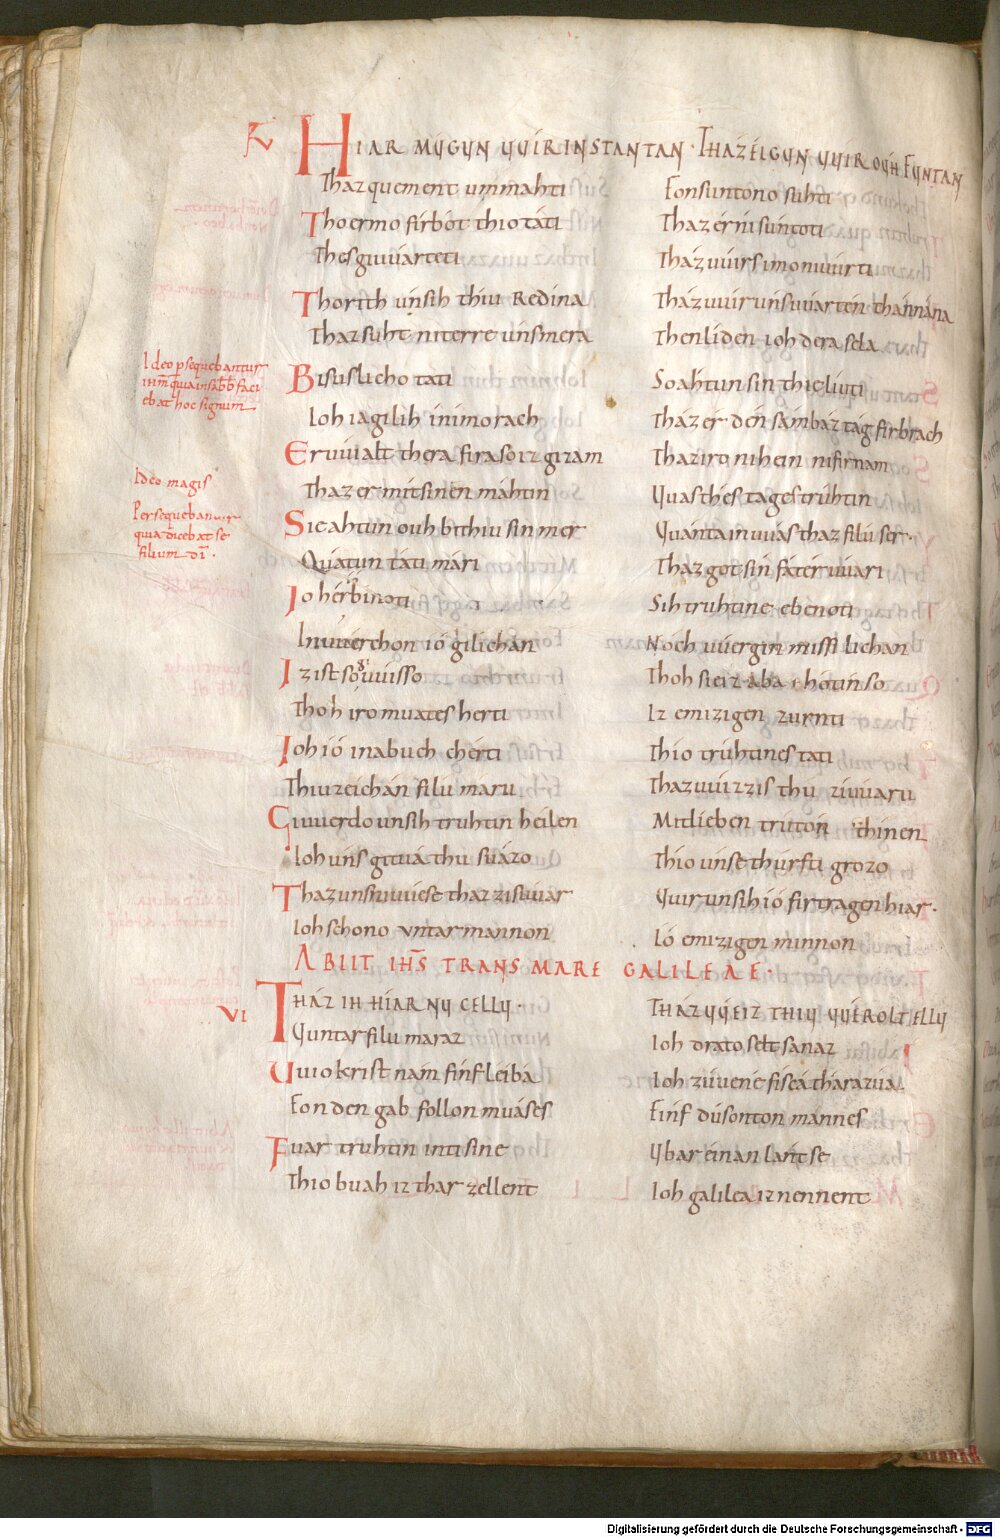 HIAR MUGUN UUIR INSTANTAN · THAZ EIGUN UUIR OUH FUNTAN
Thaz quement ummahti fon suntono suhti
Thoer mo firbót thio táti Thaz ér ni súntoti
Thes giuuárteti Tház uuírs imo ni uuúrti
Thorith únsih thiu Redina Tház uuir unsiuúarten thánnana
Thaz suht ni terre úns mera Then líden ioh dera sela
Bisuslicho tati So ahtun sin thie liuti
Ioh iagilih ínimo rach Tház ér den sámbaz tág firbrach
Eruuialt thera fira so iz gizam Thaz iro nihein nifirnam
Thaz er mít sinen máhtin Uuas thés tages trúhtin
Sie ahtun ouh bithiu sin mer Uuánta in uuás thaz filu ser ·
Quátun táti mári Thaz got sín fáter uuári
Ioh ér binoti Sih truhtine ebenoti
In uuérchon ió gilichan Noch uuergin missilichan
Iz ist só uuísso Thoh sie iz aba hótin so
Thoh iro muates herti Iz emizigen zurnti
Ioh ió in abuh chérti Thio trúhtines tati
Thiu zeichán filu máru Thaz uuizzist thu ziuuaru
Giuuerdo unsih truhtin heilen Mit lieben trútón thinen
Ioh úns gituá thu suázo Thio únse thurfti grozo
Thaz unsih uuíese thar zisiuuar Uuir unsih ió firtragen hiar ·
Ioh schono untar mannon Ió emizigen minnon
ABIIT IHS TRANS MARE GALILEAE ·
VI
THÁZ IH HÍAR NU CELLU · THAZ UUEIZ THIU UUÉROLT ELLU
Uuntar filu maraz Ioh drato seltsanaz
Uuio krist nam fínf leiba Ioh zuuene fisga thárazua
Fon den gab follon muases Finf dúsonton mánnes
Fuar truhtin inti sine Ubar éinan lantse
Thio buah iz thar zellent Ioh galilea iz nennent
Ideo p̄sequebantur
ih̄m quia in sabb̄ faci
ebat hoc signum
Ideo magis
Persequebantur
quia dicebat se
filium dī ·
Digitalisierung gefördert durch die Deutsche Forschungsgemeinschaft - DFG